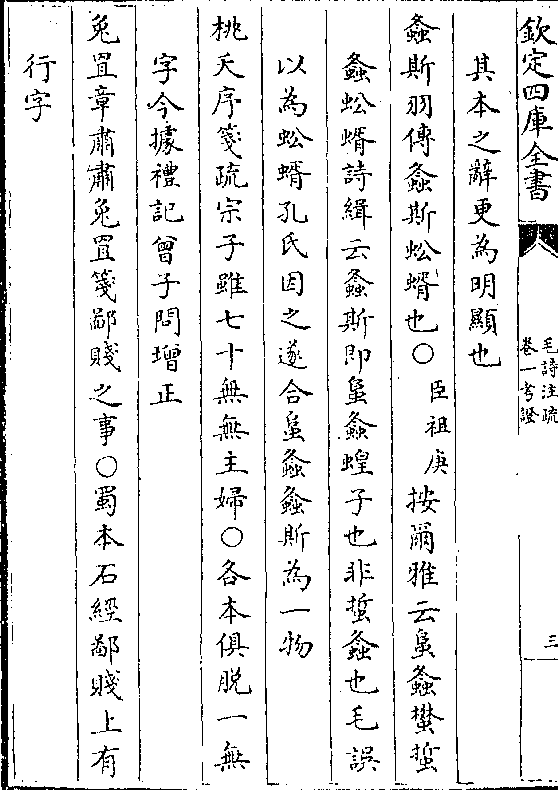 欽定四庫全書
毛詩注疏
卷一考證
三
其本之辭更為明顯也
螽斯羽傳螽斯蚣蝑也○臣祖庚按爾雅云蛗螽蠜蜤
螽蚣蝑詩緝云螽斯即蛗螽蝗子也非蜤螽也毛誤
以為蚣蝑孔氏因之遂合蛗螽螽斯為一物
桃夭序箋疏宗子雖七十無無主婦○各本俱脫一無
字今據禮記曾子問增正
兔罝章肅肅兔罝箋鄙賤之事○蜀本石經鄙賤上有
行字